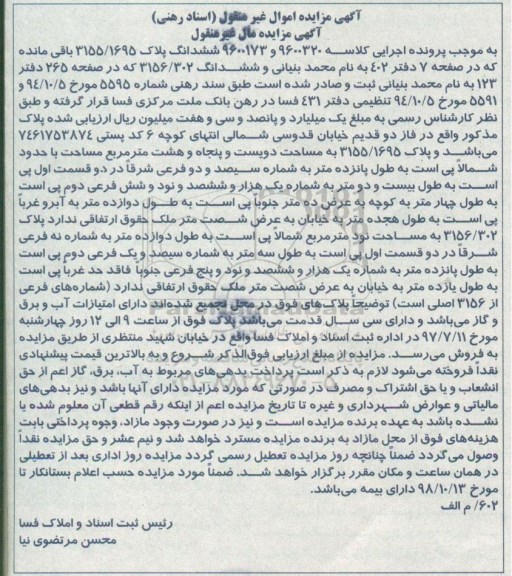 آگهی مزایده اموال غیر منقول (اسناد رهنی)
آگهی مزایده مال غیرمنقول
به موجب پرونده اجرایی کلاسه ۹۶۰۰۳۲۰ و ۹۶۰۰۱۷۳ ششدانگ پلاک ۳۱۵۵/۱۶۹۵ باقی مانده
که در صفحه ۷ دفتر ۴۰۲ به نام محمد بنیانی و ششدانگ ۳۱۵۶/۳۰۲ که در صفحه ۲۶۵ دفتر
۱۲۳ به نام محمد بنیانی ثبت و صادر شده است طبق سند رهنی شماره ۵۵۹۵ مورخ ۹۴/۱۰/۵ و
۵۵۹۱ مورخ ۹۴/۱۰/۵ تنظیمی دفتر ۴۳۱ فسا در رهن بانک ملت مرکزی فسا قرار گرفته و طبق
نظر کارشناس رسمی به مبلغ یک میلیارد و پانصد و سی و هفت میلیون ریال ارزیابی شده پلاک
مذکور واقع در فاز دو قدیم خیابان قدوسی شمالی انتهای کوچه ۶ کد پستی ۷۴۶۱۷۵۳۸۷۴
می‌باشد و پلاک ۳۱۵۵/۱۶۹۵ به مساحت دویست و پنجاه و هشت مترمربع مساحت با حدود
شمالاً پی است به طول پانزده متر به شماره سیصد و دو فرعی شرقاً در دو قسمت اول پی
است به طول بیست و دو متر به شماره یک هزار و ششصد و نود و شش فرعی دوم پی است
به طول چهار متر به کوچه به عرض ده متر جنوباً پی است به طول دوازده متر به آبرو غرباً
پی است به طول هجده متر به خیابان به عرض شصت متر ملک حقوق ارتفاقی ندارد پلاک
۳۱۵۶/۳۰۲ به مساحت نود مترمربع شمالاً پی است به طول دوازده متر به شماره نه فرعی
شرقاً در دو قسمت اول پی است به طول سه متر به شماره سیصد و یک فرعی دوم پی است
به طول پانزده متر به شماره یک هزار و ششصد و نود و پنج فرعی جنوباً فاقد حد غرباً پی است
به طول یازده متر به خیابان به عرض شصت متر ملک حقوق ارتفاقی ندارد (شماره‌های فرعی
از ۳۱۵۶ اصلی است) توضیحاً پلاک‌های فوق در محل تجمیع شده‌اند دارای امتیازات آب و برق
و گاز می‌باشد و دارای سی سال قدمت می‌باشد پلاک فوق از ساعت ۹ الی ۱۲ روز چهارشنبه
مورخ ۹۷/۷/۱۱ در اداره ثبت اسناد و املاک فسا واقع در خیابان شهید منتظری از طریق مزایده
به فروش می‌رسد. مزایده از مبلغ ارزیابی فوق‌الذکر شروع و به بالاترین قیمت پیشنهادی
نقداً فروخته می‌شود لازم به ذکر است پرداخت بدهی‌های مربوط به آب، برق، گاز اعم از حق
انشعاب و یا حق اشتراک و مصرف در صورتی که مورد مزایده دارای آنها باشد و نیز بدهی‌های
مالیاتی و عوارض شهرداری و غیره تا تاریخ مزایده اعم از اینکه رقم قطعی آن معلوم شده یا
نشده باشد به عهده برنده مزایده است و نیز در صورت وجود مازاد، وجوه پرداختی بابت
هزینه‌های فوق از محل مازاد به برنده مزایده مسترد خواهد شد و نیم عشر و حق مزایده نقداً
وصول می‌گردد ضمناً چنانچه روز مزایده تعطیل رسمی گردد مزایده روز اداری بعد از تعطیلی
در همان ساعت و مکان مقرر برگزار خواهد شد. ضمناً مورد مزایده حسب اعلام بستانکار تا
مورخ ۹۸/۱۰/۱۳ دارای بیمه می‌باشد.
۶۰۲/ م الف
رئیس ثبت اسناد و املاک فسا
محسن مرتضوی نیا